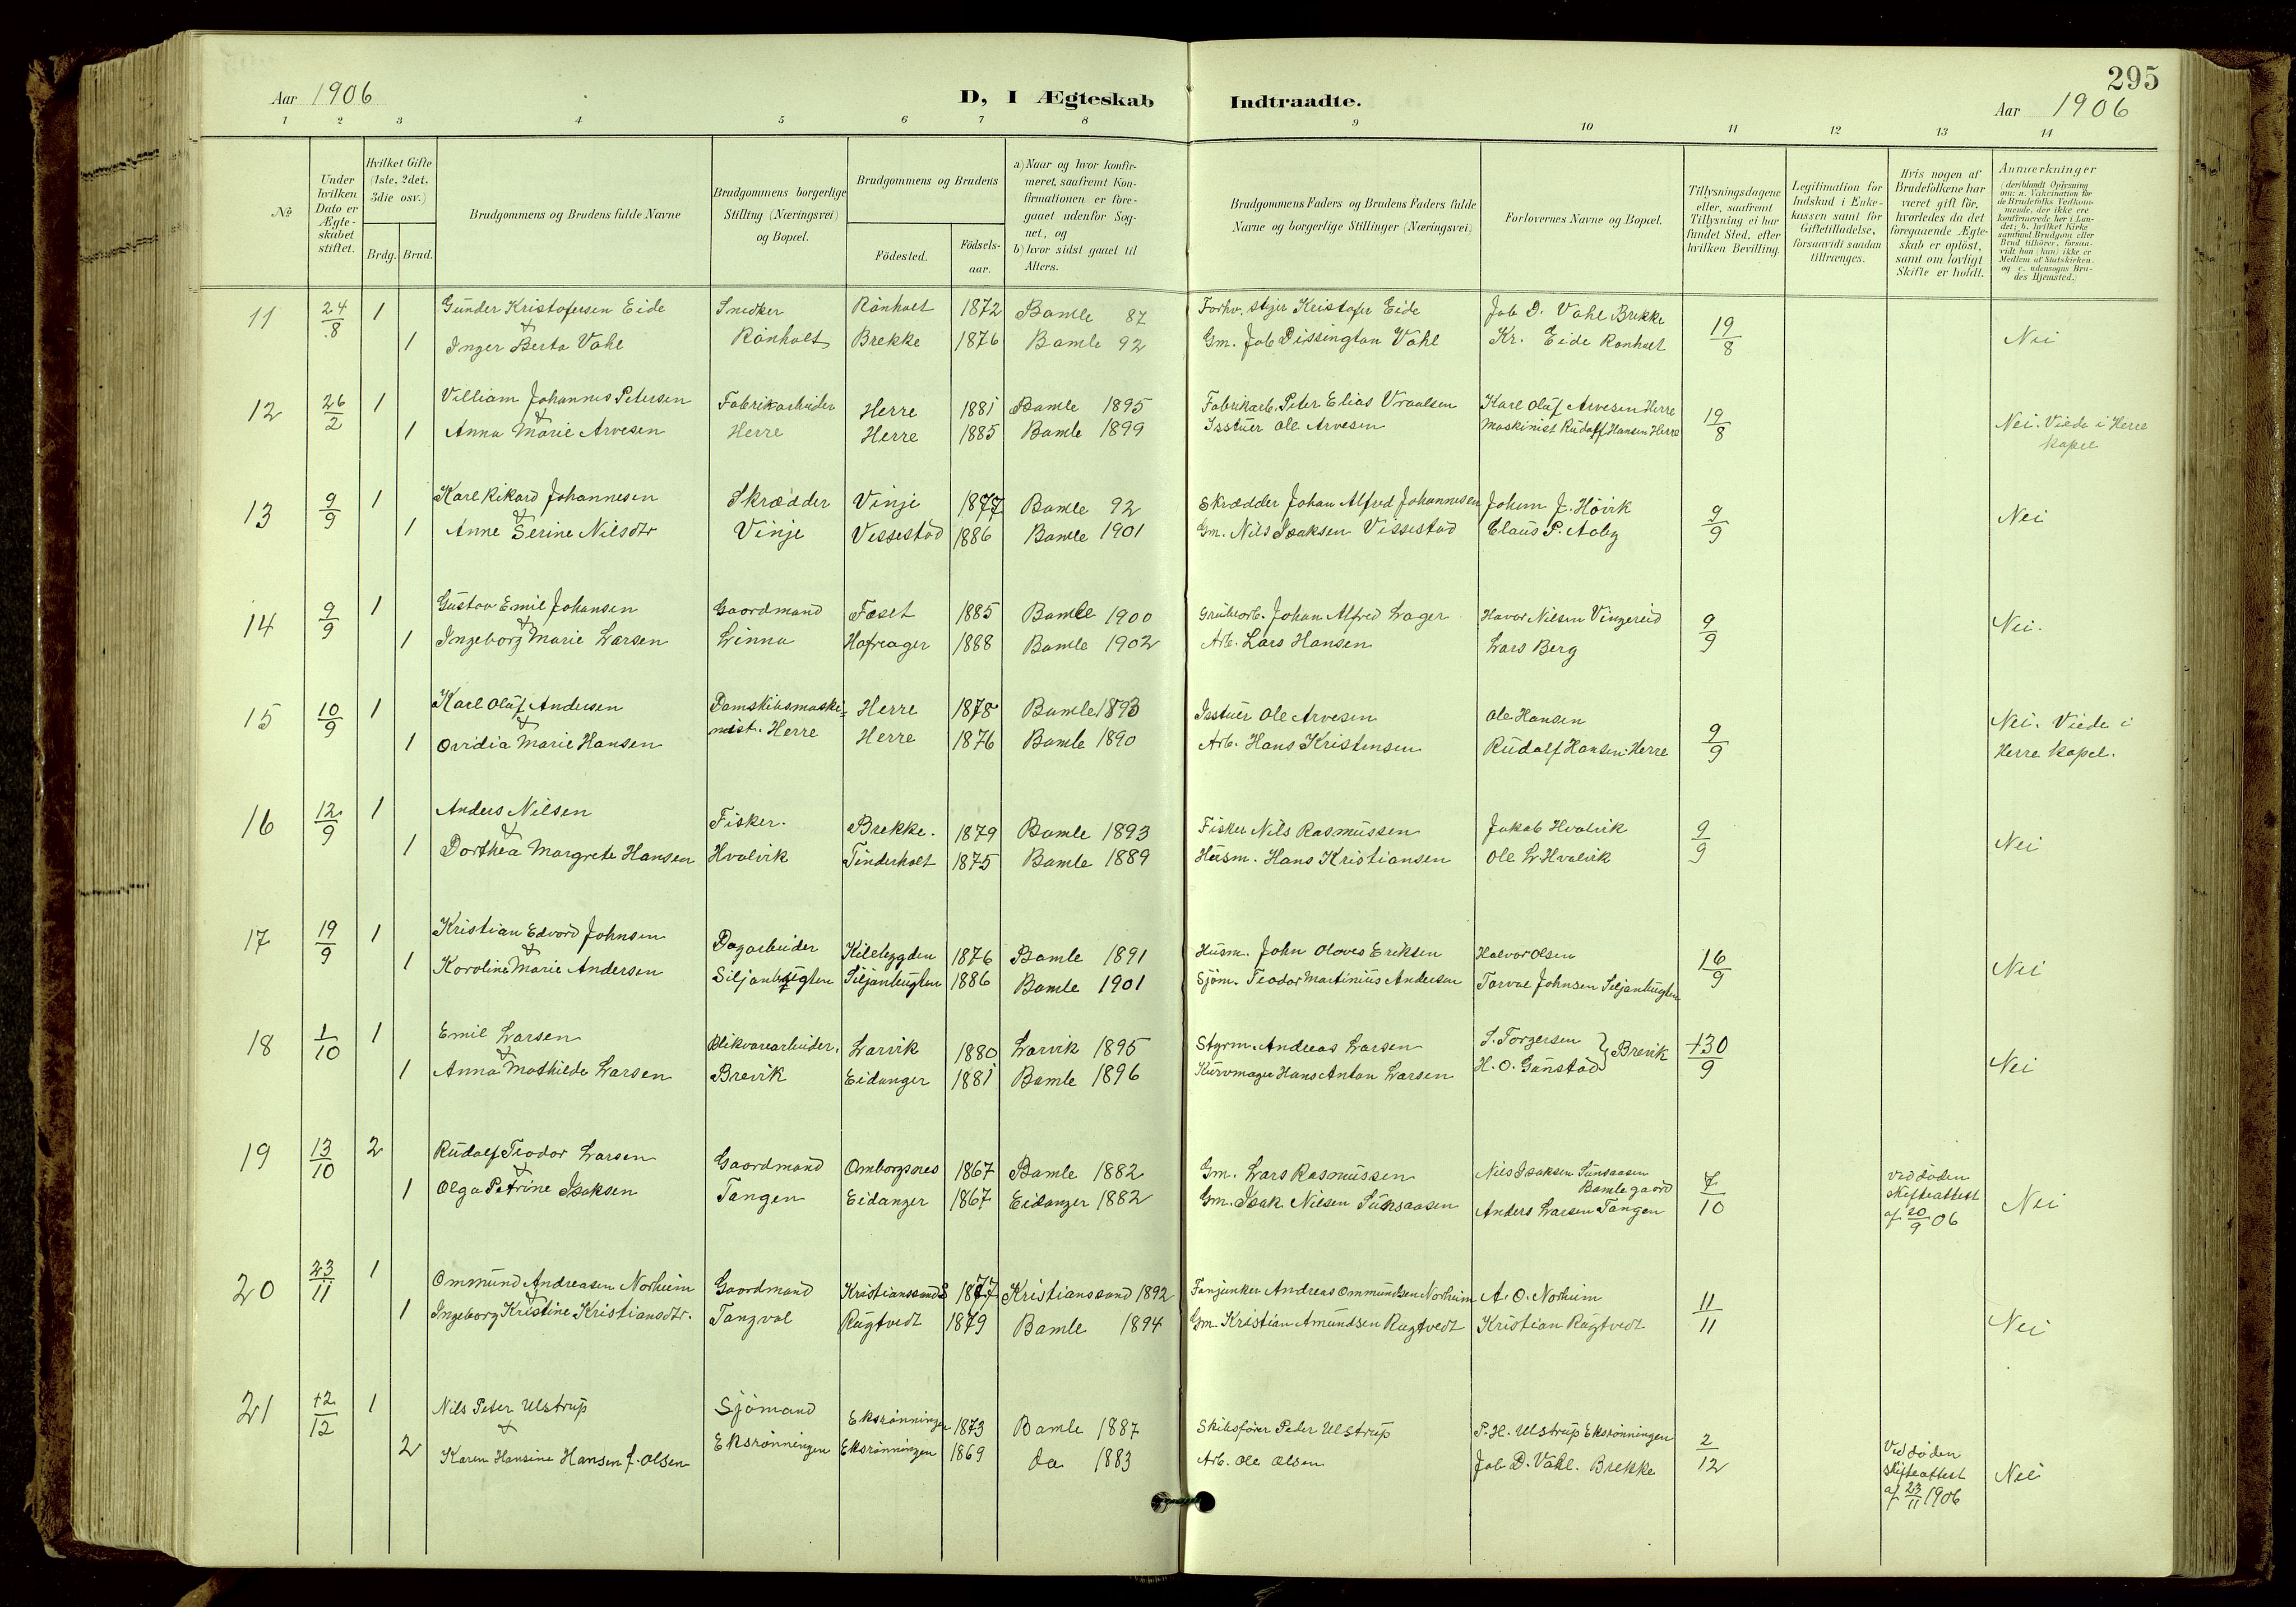 295
Aar 1906
D, I Ægteskab Indtraadte.
Aar 1906
1 2 3 4 5 6 7 8 9 10 11 12 13 14
No
Under hvilken Dato er Ægteskabet stiftet.
Hvilket Gifte (1ste, 2det, 3die osv.)
Brdg. Brud.
Brudgommens og Brudens fulde Navne
Brudgommens borgerlige Stilling (Næringsvei) og Bopæl.
Brudgommens og Brudens
Födested.
Födselsaar.
a) Naar og hvor konfirmeret, saafremt Konfirmationen er foregaaet udenfor Sognet, og
b) hvor sidst gaaet til Alters.
Brudgommens Faders og Brudens Faders fulde Navne og borgerlige Stillinger (Næringsvei)
Forlovernes Navne og Bopæl.
Tillysningsdagene eller, saafremt Tillysning ei har fundet Sted, efter hvilken Bevilling.
Legitimation for Indskud i Enkekassen samt for Giftetilladelse, forsaavidt saadan tiltrænges.
Hvis nogen af Brudefolkene har været gift för, hvorledes da det foregaaende Ægteskab er oplöst, samt om lovligt Skifte er holdt.
Anmærkninger (deriblandt Oplysning om: a. Vakcination for de Brudefolks Vedkommende, der ikke ere konfirmerede her i Landet; b. hvilket Kirkesamfund Brudgom eller Brud tilhörer, forsaavidt han (hun) ikke er Medlem af Statskirken, og c. udensogns Brudes Hjemsted.)
11 24/8 1 Gunder Kristofersen Eide Snedker Rönholt 1872 Bamle 87 Forhv. Kristofer Eide Job D. Vahl Brekke 19/8 Nei
&
1 Inger Berta Vahl Rönholt Brekke 1876 Bamle 92 Gm. Job Dissington Vahl Kr. Eide Rönholt
12 26/2 1 Villiam Johannes Petersen Fabrikarbeider Herre 1881 Bamle 1895 Fabrikarb. Peter Elias Vraalsen Karl Olaf Arvesen Herre 19/8 Nei. Viede i Herre kapel
&
1 Anna Marie Arvesen Herre Herre 1885 Bamle 1899 Isstuer Ole Arvesen Maskinist Rudolf Hansen Herre
13 9/9 1 Karl Rikard Johannesen Skrædder Vinje 1877 Bamle 92 Skrædder Johan Alfred Johannesen Johan J. Hövik 9/9 Nei
&
1 Anne Serine Nilsdtr Vinje Vissestad 1886 Bamle 1901 Gm. Nils Isaksen Vissestad Claus P. Aaby
14 9/9 1 Gustav Emil Johansen Gaardmand Foset 1885 Bamle 1900 Grubearb. Johan Alfred Lager Havor Nilsen Vingereid 9/9 Nei.
&
1 Ingeborg Marie Larsen Linna Hafreager 1888 Bamle 1902 Arb. Lars Hansen Lars Berg
15 10/9 1 Karl Olaf Andersen Damskibsmaski= Herre 1878 Bamle 1893 Isstuer Ole Arvesen Ole Hansen 9/9 Nei. Viede i
&
1 Ovidia Marie Hansen nist. Herre Herre 1876 Bamle 1890 Arb. Hans Kristensen Rudolf Hansen. Herre Herre kapel.
16 12/9 1 Anders Nilsen Fisker. Brekke. 1879 Bamle 1893 Fisker Nils Rasmussen Jakob Hvalvik 9/9 Nei
&
1 Dorthea Margrete Hansen Hvalvik Tinderholt 1875 Bamle 1889 Husm. Hans Kristiansen Ole L Hvalvik
17 19/9 1 Kristian Edvard Johnsen Dagarbeider Kilebygden 1876 Bamle 1891 Husm. John Oloves Eriksen Halvor Olsen 16/9 Nei
&
1 Karoline Marie Andersen Siljanbugten Siljanbugten 1886 Bamle 1901 Sjöm. Teodor Martinius Andersen Torval Johnsen Siljanbugten
18 1/10 1 Emil Larsen Blikvarearbeider. Larvik 1880 Larvik 1895 Styrm. Andreas Larsen S. Torgersen } Brevik +30/9 Nei
&
1 Anna Mathilde Larsen Brevik Eidanger 1881 Bamle 1896 Kurvmager Hans Anton Larsen H. O. Gunstad
19 13/10 2 Rudolf Teodor Larsen Gaardmand Omborgsnes 1867 Bamle 1882 Gm. Lars Rasmussen Nils Isaksen Sunsaasen Bamle gaard 7/10 Ved döden skifteattest af 20/9 06 Nei
&
1 Olga Petrine Isaksen Tangen Eidanger 1867 Eidanger 1882 Gm. Isak Nilsen Sunsaasen Anders Larsen Tangen
20 23/11 1 Ommund Andreasen Norheim Gaardmand Kristianssand S 1877 Kristianssand 1892 Fanjunker Andreas Ommundsen Norheim A. O. Norheim 11/11 Nei
&
1 Ingeborg Kristine Kristiansdtr. Tangval Rugtvedt 1879 Bamle 1894 Gm. Kristian Amundsen Rugtvedt Kristian Rugtvedt
21 +2/12 1 Nils Peter Ulstrup Sjömand Eksrönningen 1873 Bamle 1887 Skibsförer Peder Ulstrup P. H. Ulstrup Eksrönningen 2/12 Ved döden skifteattest af 23/11 1906 Nei
&
2 Karen Hansine Hansen f. Olsen Eksrönningen Eksrönningen 1869 do 1883 Arb. Ole Olsen Job D. Vahl. Brekke